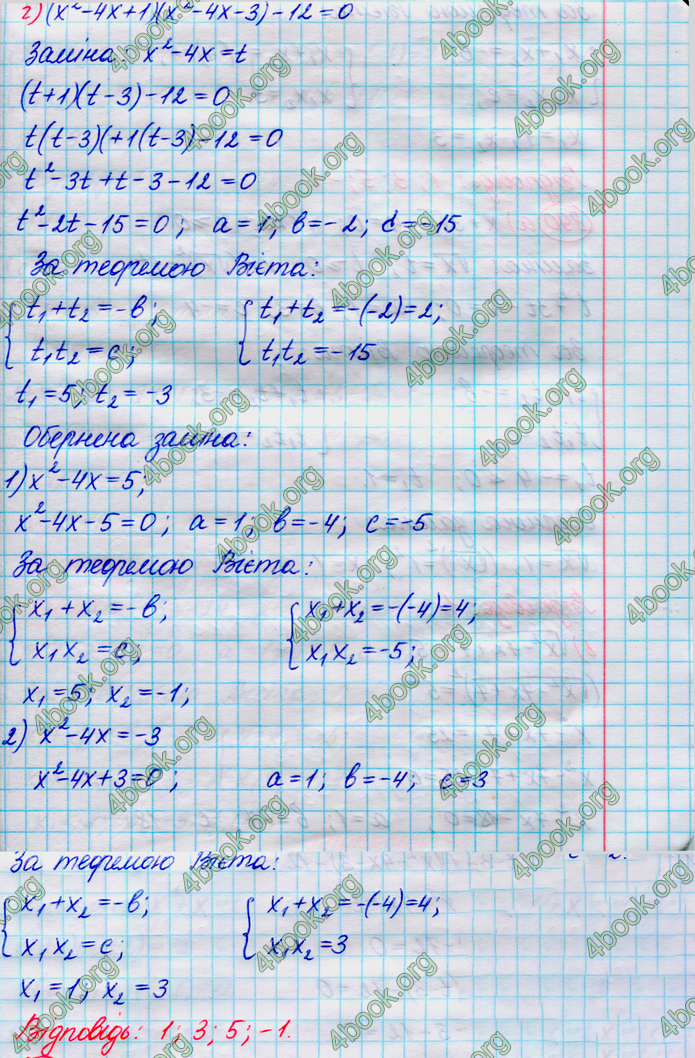 г) (x²-4x+1)(x²-4x-3)-12=0
Заміна: x²-4x=t
(t+1)(t-3)-12=0
t(t-3)(+1(t-3)-12=0
t²-3t+t-3-12=0
t²-2t-15=0; a=1; b=-2; c=-15
За теоремою Вієта:
t₁+t₂=-b; t₁+t₂=-(-2)=2;
t₁t₂=c; t₁t₂=-15
t₁=5; t₂=-3
Обернена заміна:
1) x²-4x=5;
x²-4x-5=0; a=1; b=-4; c=-5
За теоремою Вієта:
x₁+x₂=-b; x₁+x₂=-(-4)=4;
x₁x₂=c; x₁x₂=-5;
x₁=5; x₂=-1;
2) x²-4x=-3
x²-4x+3=0; a=1; b=-4; c=3
За теоремою Вієта:
x₁+x₂=-b; x₁+x₂=-(-4)=4;
x₁x₂=c; x₁x₂=3
x₁=1; x₂=3
Відповідь: 1; 3; 5; -1.
4book.org